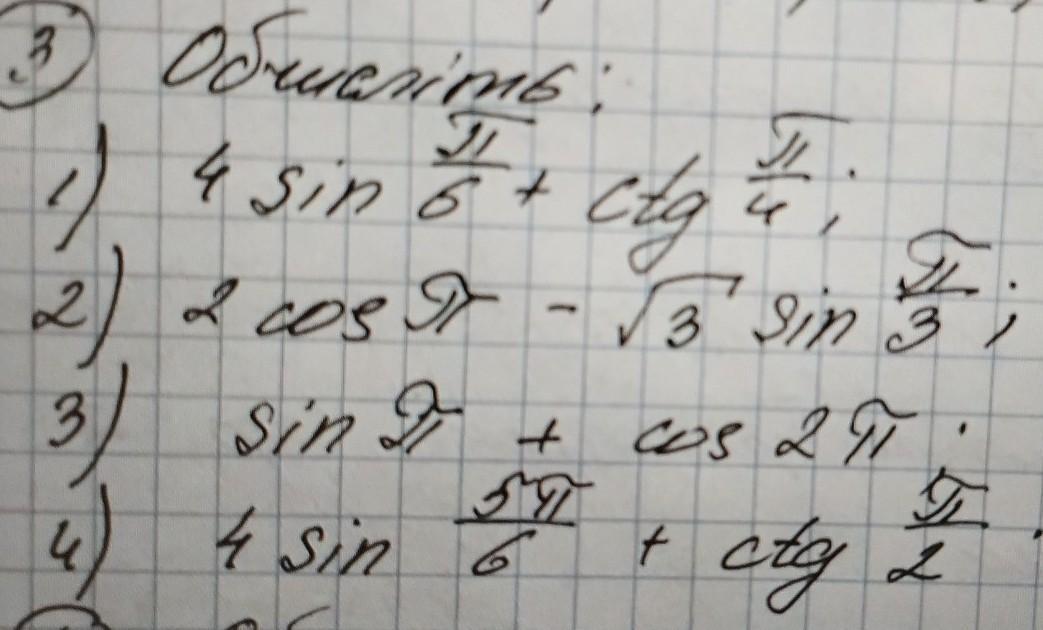 3 Обчисліть:
1) 4 sin π/6 + ctg π/4;
2) 2 cos π - √3 sin π/3;
3) sin π + cos 2π.
4) 4 sin 5π/6 + ctg π/2.